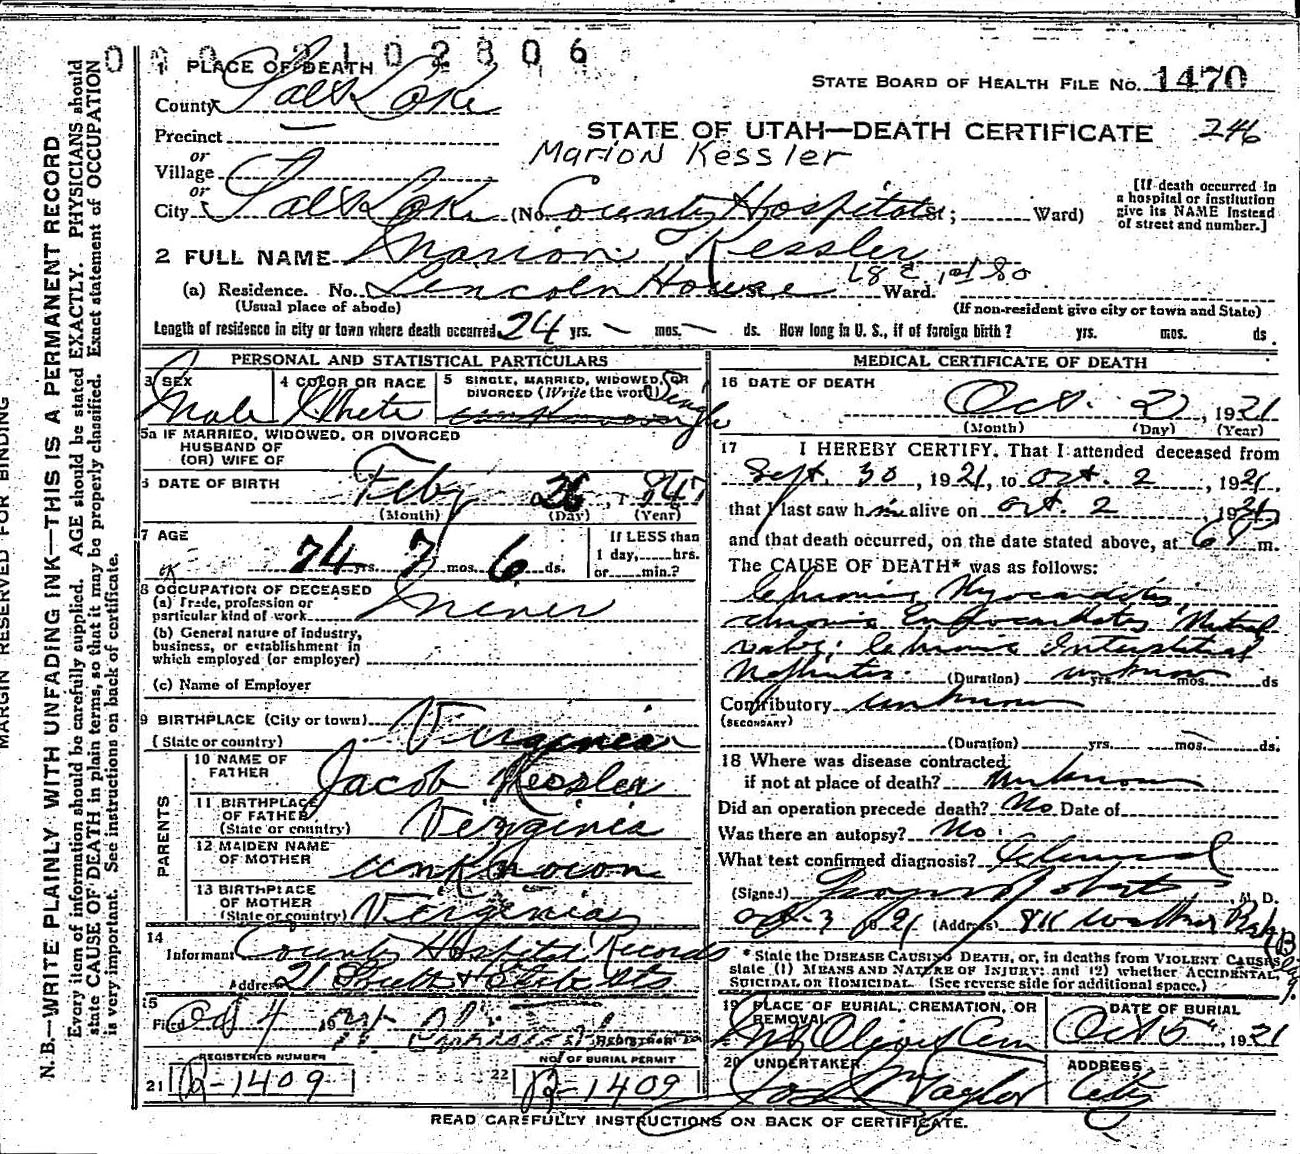 0002102806
1 PLACE OF DEATH
STATE BOARD OF HEALTH FILE NO. 1470
County Salt Lake
STATE OF UTAH—DEATH CERTIFICATE 246
Precinct
Marion Kessler
or
Village
or
City Salt Lake (No. County Hospital St; Ward)
[If death occurred in a hospital or institution give its NAME instead of street and number.]
2 FULL NAME Marion Kessler
(a) Residence. No. Lincoln House 68 E 1st So Ward.
(Usual place of abode) (If non-resident give city or town and State)
Length of residence in city or town where death occurred 24 yrs. — mos. — ds. How long in U. S., if of foreign birth? yrs. mos. ds.
PERSONAL AND STATISTICAL PARTICULARS
3 SEX Male
4 COLOR OR RACE White
5 SINGLE, MARRIED, WIDOWED, OR DIVORCED (Write the word) Single
5a IF MARRIED, WIDOWED, OR DIVORCED
HUSBAND OF
(OR) WIFE OF
6 DATE OF BIRTH Feby 26, 1847
(Month) (Day) (Year)
7 AGE 74 yrs. 7 mos. 6 ds.
If LESS than
1 day, hrs.
or min.?
8 OCCUPATION OF DECEASED
(a) Trade, profession or
particular kind of work Miner
(b) General nature of industry,
business, or establishment in
which employed (or employer)
(c) Name of Employer
9 BIRTHPLACE (City or town) Virginia
(State or country)
PARENTS
10 NAME OF FATHER Jacob Kessler
11 BIRTHPLACE OF FATHER Virginia
(State or country)
12 MAIDEN NAME OF MOTHER unknown
13 BIRTHPLACE OF MOTHER Virginia
(State or country)
14
Informant County Hospital Records
Address 21 South & State Sts
15
Filed Oct 4 1921
REGISTRAR
REGISTERED NUMBER
21 B-1409
NO. OF BURIAL PERMIT
22 B-1409
MEDICAL CERTIFICATE OF DEATH
16 DATE OF DEATH
Oct. 2, 1921
(Month) (Day) (Year)
17 I HEREBY CERTIFY, That I attended deceased from
Sept. 30, 1921, to Oct. 2, 1921
that I last saw him alive on Oct. 2 1921
and that death occurred, on the date stated above, at 6 P m.
The CAUSE OF DEATH* was as follows:
Chronic Myocarditis,
chronic Endocarditis Mitral
valve; Chronic Interstitial
Nephritis. (Duration) unknown yrs. mos. ds
Contributory unknown
(SECONDARY)
(Duration) yrs. mos. ds.
18 Where was disease contracted
if not at place of death? Unknown
Did an operation precede death? No Date of
Was there an autopsy? No.
What test confirmed diagnosis? Clinical
(Signed) Roberts, M. D.
Oct. 3, 1921 (Address) 811 Walker Bk Bldg.
* State the DISEASE CAUSING DEATH, or, in deaths from VIOLENT CAUSES, state (1) MEANS AND NATURE OF INJURY; and (2) whether ACCIDENTAL, SUICIDAL or HOMICIDAL. (See reverse side for additional space.)
19 PLACE OF BURIAL, CREMATION, OR REMOVAL
Mt Olivet Cem
DATE OF BURIAL
Oct 5", 1921
20 UNDERTAKER
Jos Wm Taylor
ADDRESS
City
READ CAREFULLY INSTRUCTIONS ON BACK OF CERTIFICATE.
MARGIN RESERVED FOR BINDING
N. B.—WRITE PLAINLY WITH UNFADING INK—THIS IS A PERMANENT RECORD
Every item of information should be carefully supplied. AGE should be stated EXACTLY. PHYSICIANS should
state CAUSE OF DEATH in plain terms, so that it may be properly classified. Exact statement of OCCUPATION
is very important. See instructions on back of certificate.